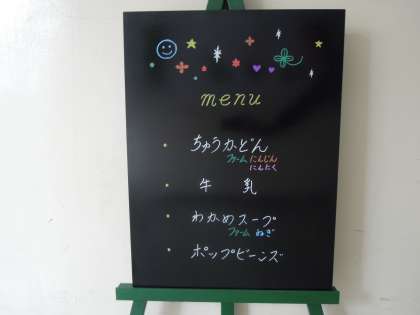 menu
・ ちゅうかどん
ファーム にんじん
にんたく
・ 牛 乳
・ わかめスープ
ファーム ねぎ
・ ポップビーンズ